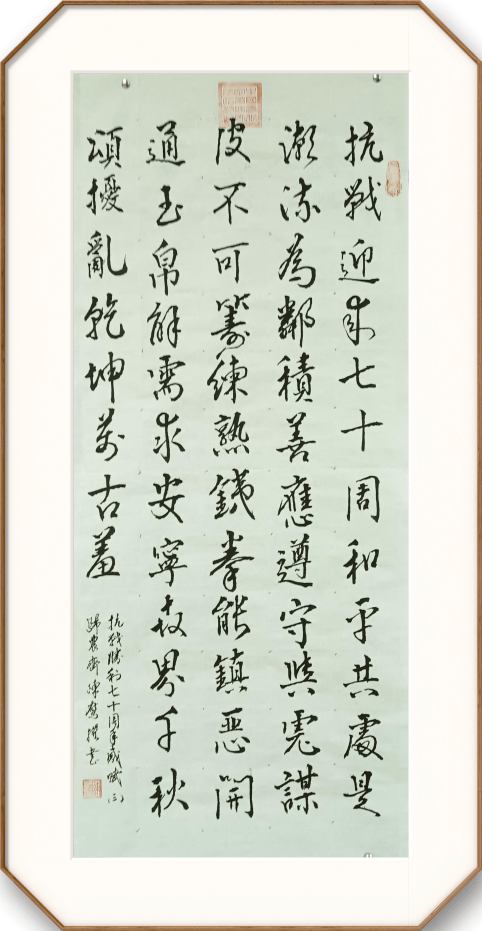 抗戰迎來七十周和平共處是
潮流為鄰積善應遵守與虎謀
皮不可籌練熟鐵拳能鎮惡開
通玉帛解需求安寧世界千秋
頌擾亂乾坤萬古羞
抗戰勝利七十周年感賦(三)
歸農齋陳 撰書